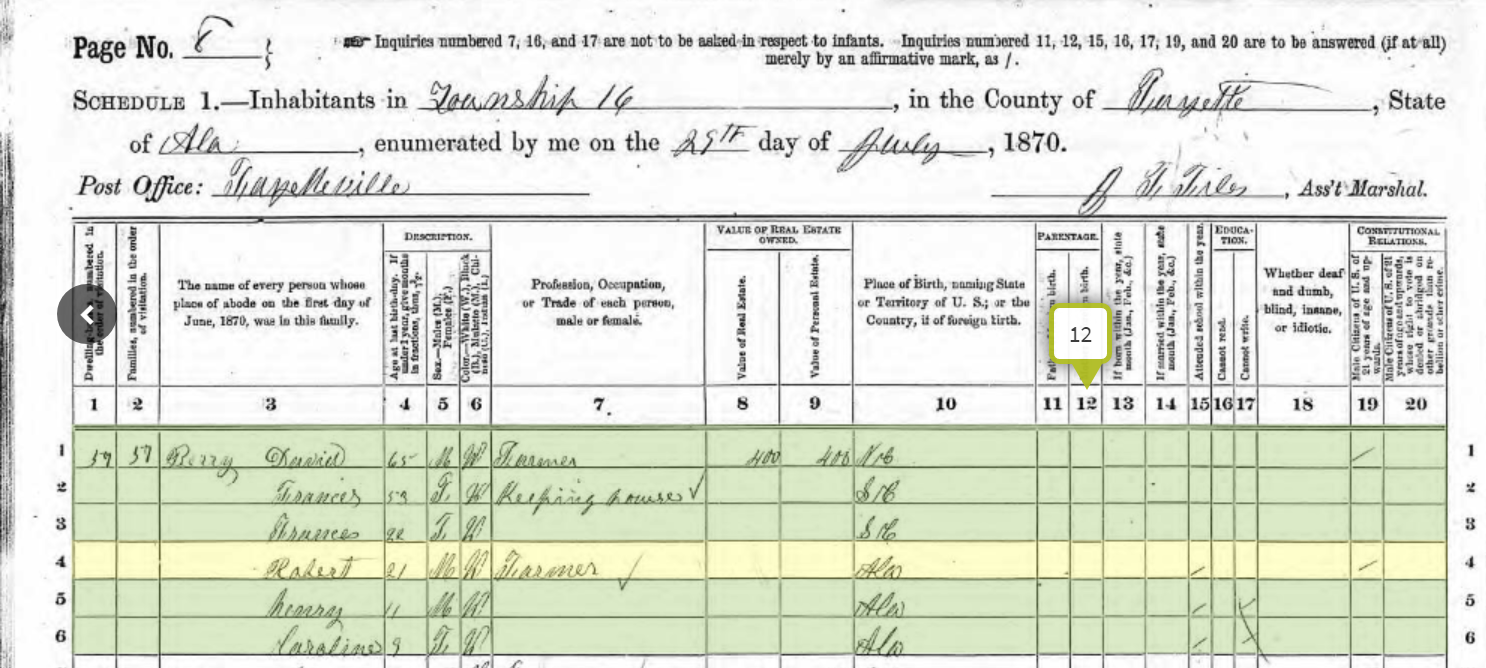 Page No. 8
Inquiries numbered 7, 16, and 17 are not to be asked in respect to infants. Inquiries numbered 11, 12, 15, 16, 17, 19, and 20 are to be answered (if at all)
merely by an affirmative mark, as /.
SCHEDULE 1.—Inhabitants in Township 16, in the County of Fayette, State
of Ala, enumerated by me on the 29TH day of July, 1870.
Post Office: Fayetteville , Ass't Marshal.
DESCRIPTION. VALUE OF REAL ESTATE OWNED. PARENTAGE. EDUCATION. CONSTITUTIONAL RELATIONS.
Families, numbered in the order of visitation.
The name of every person whose place of abode on the first day of June, 1870, was in this family.
Age at last birth-day. If under 1 year, give months in fractions, thus,
Sex.—Males (M.), Females (F.)
Color.—White (W.), Black (B.), Mulatto (M.), Chinese (C.), Indian (I.)
Profession, Occupation, or Trade of each person, male or female.
Value of Real Estate.
Value of Personal Estate.
Place of Birth, naming State or Territory of U. S.; or the Country, if of foreign birth.
If born within the year, state month (Jan., Feb., &c.)
If married within the year, state month (Jan., Feb., &c.)
Attended school within the year.
Cannot read.
Cannot write.
Whether deaf and dumb, blind, insane, or idiotic.
Male Citizens of U. S. of 21 years of age and upwards.
Male Citizens of U. S. of 21 years of age and upwards, whose right to vote is denied or abridged on other grounds than rebellion or other crime.
12
1 2 3 4 5 6 7 8 9 10 11 12 13 14 15 16 17 18 19 20
1 57 57 Berry David 65 M W Farmer 400 400 N C / 1
2 Frances 53 F W Keeping house S C 2
3 Frances 22 F W S C 3
4 Robert 21 M W Farmer Ala / / 4
5 Henry 11 M W Ala / 5
6 Caroline 9 F W Ala / 6